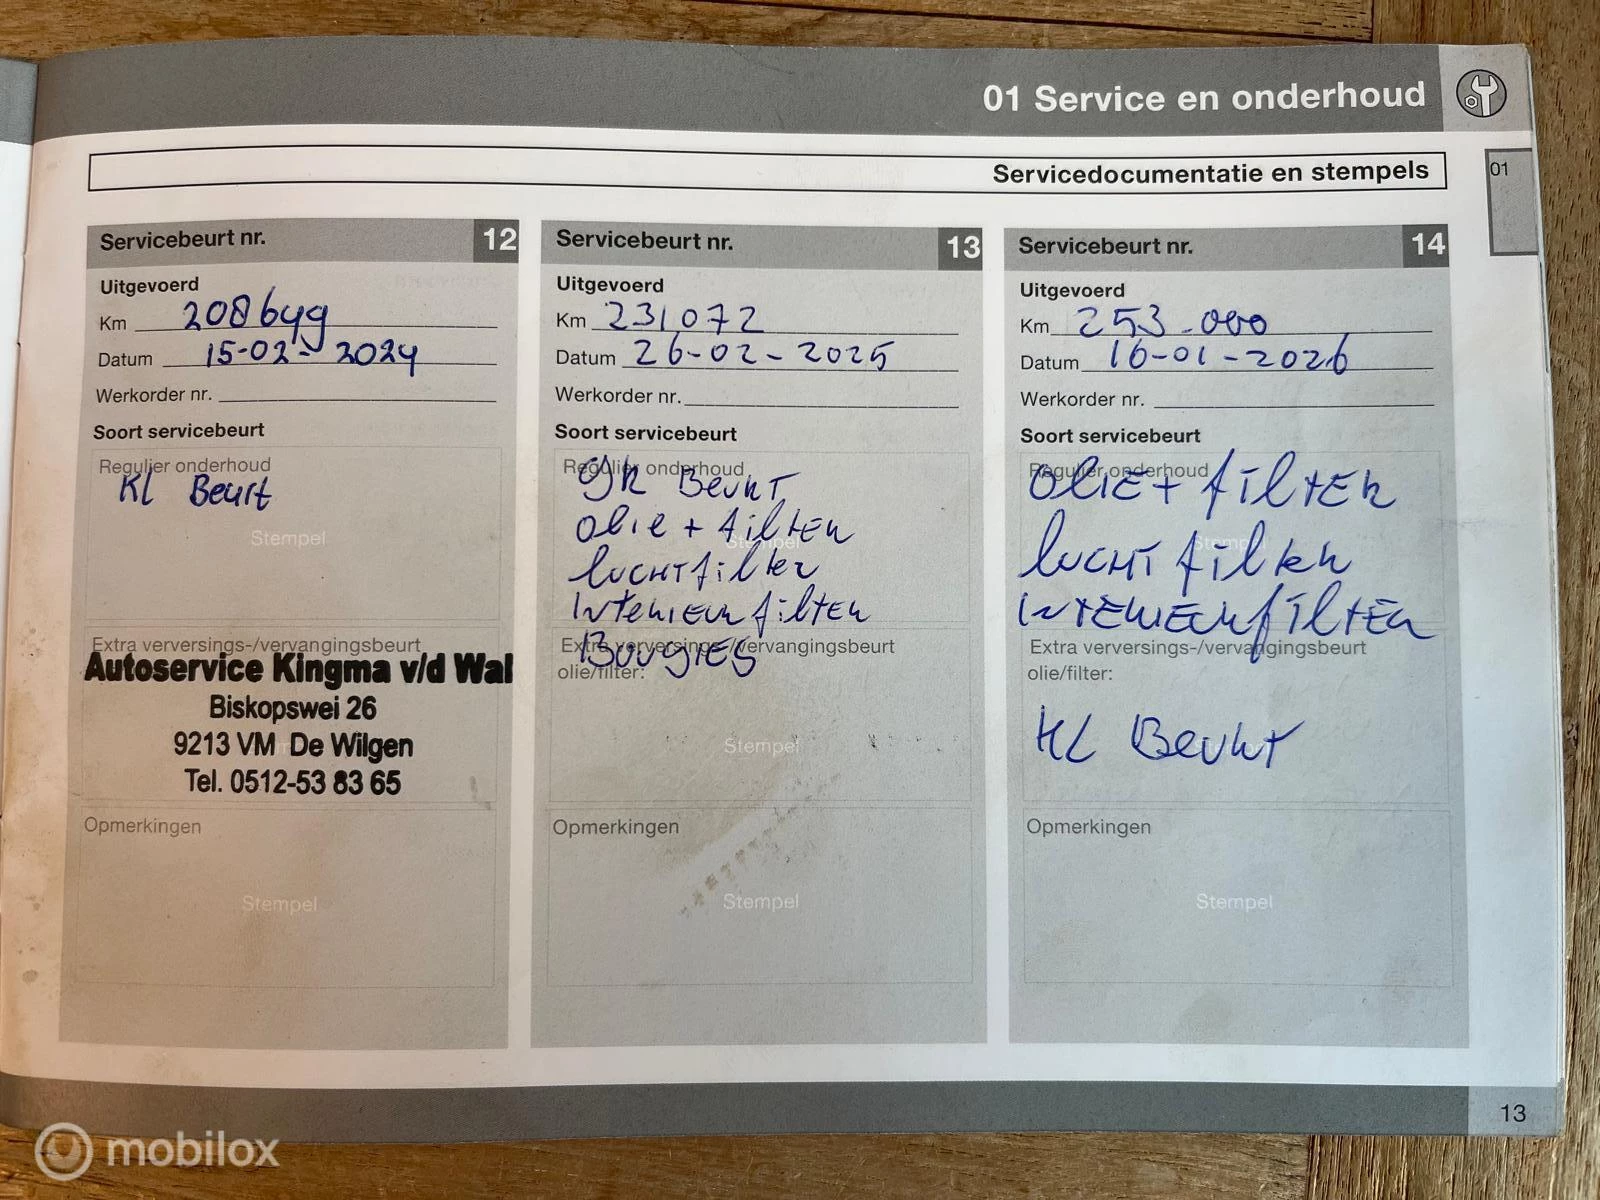 01 Service en onderhoud
Servicedocumentatie en stempels
01
Servicebeurt nr. 12
Uitgevoerd
Km 208649
Datum 15-02-2024
Werkorder nr.
Soort servicebeurt
Regulier onderhoud
Kl Beurt
Stempel
Extra verversings-/vervangingsbeurt
Autoservice Kingma v/d Wal
Biskopswei 26
9213 VM De Wilgen
Tel. 0512-53 83 65
Opmerkingen
Stempel
Servicebeurt nr. 13
Uitgevoerd
Km 231072
Datum 26-02-2025
Werkorder nr.
Soort servicebeurt
Regulier onderhoud
gR Beurt
olie + filter
Stempel
luchtfilter
Interieurfilter
Extra verversings-/vervangingsbeurt
Bougies
olie/filter:
Stempel
Opmerkingen
Stempel
Servicebeurt nr. 14
Uitgevoerd
Km 253.000
Datum 16-01-2026
Werkorder nr.
Soort servicebeurt
Regulier onderhoud
OLIE + filter
Stempel
lucht filter
INTERIEURfilter
Extra verversings-/vervangingsbeurt
olie/filter:
KL Beurt
Stempel
Opmerkingen
Stempel
13
mobilox